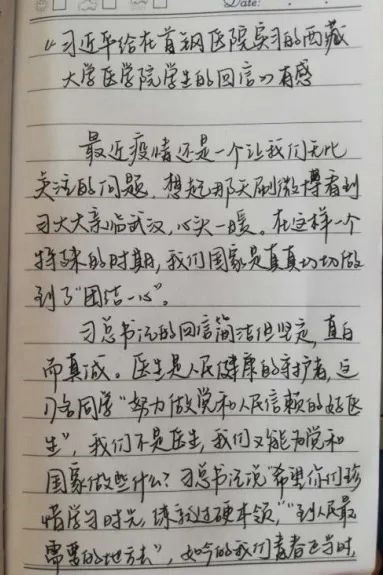 Date:
“习近平给在首钢医院实习的西藏
大学医学院学生的回信”有感
最近疫情还是一个让我们无比
关注的问题,想起那天刷微博看到
习大大亲临武汉,心头一暖。在这样一个
特殊的时期,我们国家是真真切切做
到了“团结一心”。
习总书记的回信简洁但坚定,直白
而真诚。医生是人民健康的守护者,这
几名同学“努力做党和人民信赖的好医
生”,我们不是医生,我们又能为党和
国家做些什么?习总书记说“希望你们珍
惜学习时光,练就过硬本领,”“到人民最
需要的地方去”,如今的我们青春正当时,